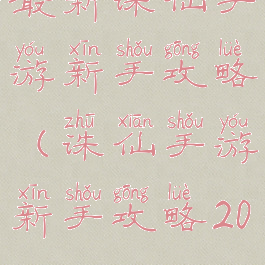 最新诛仙手
yóu xīn shǒu gōng lüè
游新手攻略
zhū xiān shǒu yóu
（诛仙手游
xīn shǒu gōng lüè
新手攻略20